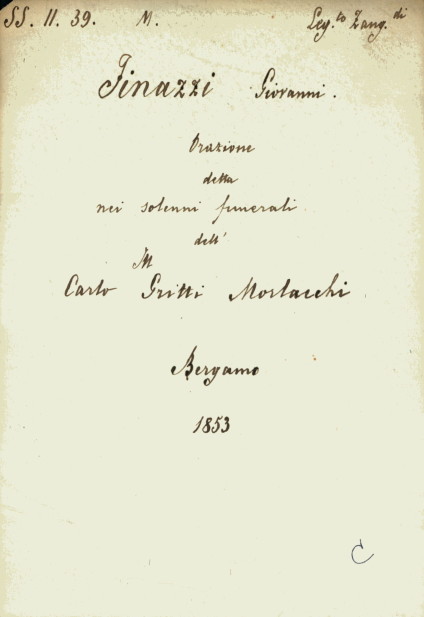 SS. II. 39. M. Leg.to Zang.di
Finazzi Giovanni.
Orazione
detta
nei solenni funerali
dell'
M
Carlo Gritti Morlacchi
Bergamo
1853
C